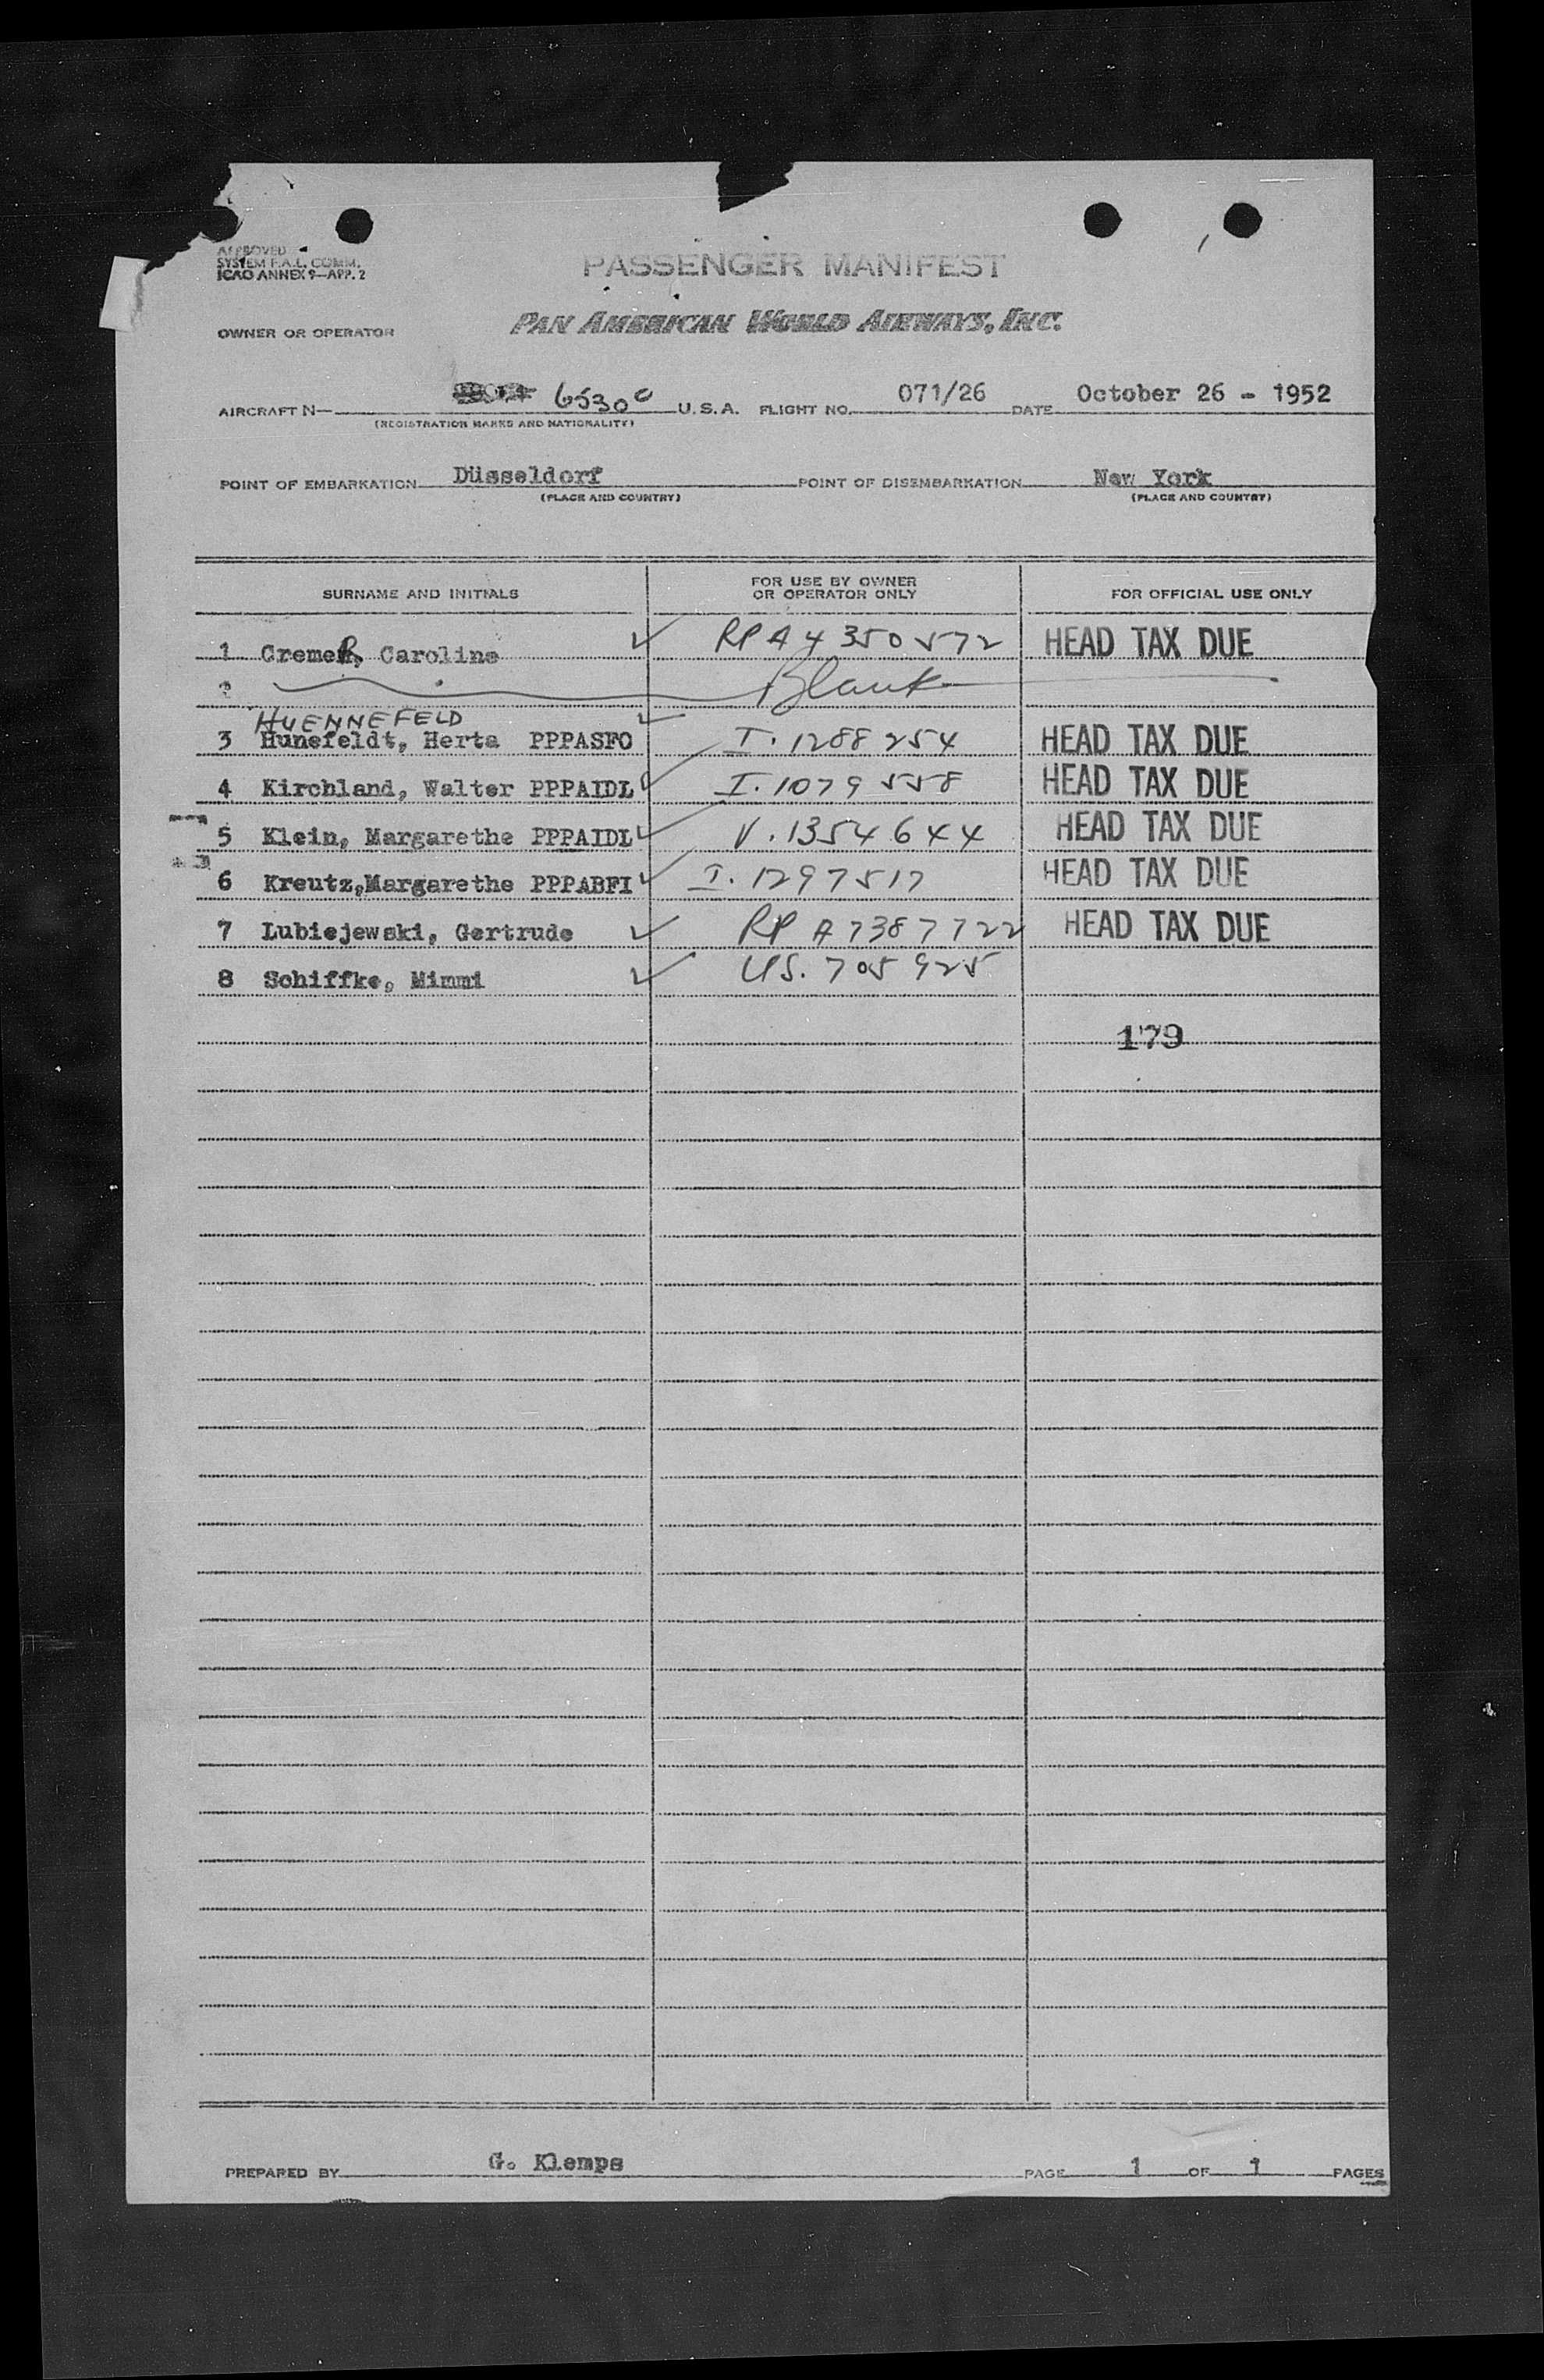 APPROVED
SYSTEM F.A.L. COMM.
ICAO ANNEX 9—APP. 2
PASSENGER MANIFEST
OWNER OR OPERATOR PAN AMERICAN WORLD AIRWAYS, INC.
AIRCRAFT N— 6530C U.S.A. FLIGHT NO. 071/26 DATE October 26 - 1952
(REGISTRATION MARKS AND NATIONALITY)
POINT OF EMBARKATION Düsseldorf POINT OF DISEMBARKATION New York
(PLACE AND COUNTRY) (PLACE AND COUNTRY)
SURNAME AND INITIALS FOR USE BY OWNER OR OPERATOR ONLY FOR OFFICIAL USE ONLY
1 CremeR, Caroline RP A4 350 572 HEAD TAX DUE
2 Blank
HUENNEFELD
3 Hunefeldt, Herta PPPASFO I. 1288254 HEAD TAX DUE
4 Kirchland, Walter PPPAIDL I. 1079558 HEAD TAX DUE
5 Klein, Margarethe PPPAIDL V. 1354644 HEAD TAX DUE
6 Kreutz,Margarethe PPPABFI I. 1297517 HEAD TAX DUE
7 Lubiejewski, Gertrude RP A7387722 HEAD TAX DUE
8 Schiffke, Mimmi US. 705925
179
PREPARED BY G. Klemps PAGE 1 OF 1 PAGES